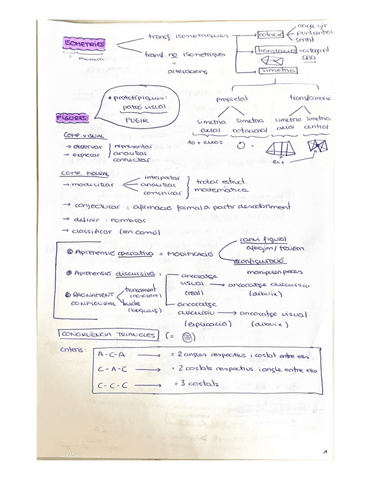 ISOMETRIES
= mesura
transf. isomètriques
transf. no isomètriques = alteracions
rotació
angle gir
punt central
sentit
translació
simetria
propietat
transformació
simetria axial
simetria rotacional
simetria axial
simetria central
eix
FIGURES
• prototípiques: patró visual
FUGIR
COMP. VISUAL
→ observar
→ explicar
representar
analitzar
connectar
→ modelitzar
interpretar
analitzar
comunicar
trobar estruct. matemàtica
→ conjecturar : afirmació formal a partir descobriment
→ definir : nombrar
→ classificar (en comú)
① APREHENSIÓ operativa = MODIFICACIÓ
canvi figural
afegim / traiem
reconfiguració
manipulem peces
② APREHENSIÓ discursiva
ancoratge visual
→ ancoratge discursiu (dibuix)
ancoratge discursiu (explicació)
→ ancoratge visual (dibuix)
③ RAONAMENT CONFIGURAL
truncament
bucle
CONGRUÈNCIA TRIANGLES (=
criteris:
A - C - A → = 2 angles respectius i costat entre ells
C - A - C → = 2 costats respectius i angle entre ells
C - C - C → = 3 costats
1